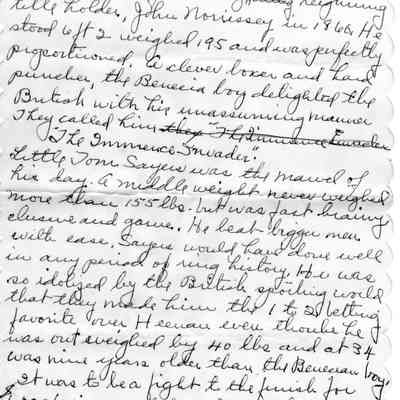 reigning
title holder, John Morrissey in 1860. He
stood 6 ft 2 weighed 195 and was perfectly
proportioned. A clever boxer and hard
puncher, the Benecia boy delighted the
British with his unassuming manner
They called him they "The Immense Invader
"The Immense Invader".
Little Tom Sayers was the marvel of
his day. A middle weight never weighed
more than 155 lbs. but was fast brainy
elusive and game. He beat bigger men
with ease. Sayers would have done well
in any period of ring history. He was
so idolized by the British sporting world
that they made him the 1 to 2 betting
favorite over Heenan even thouhe he
was outweighed by 40 lbs and at 34
was nine years older than the Benecian boy.
It was to be a fight to the finish for